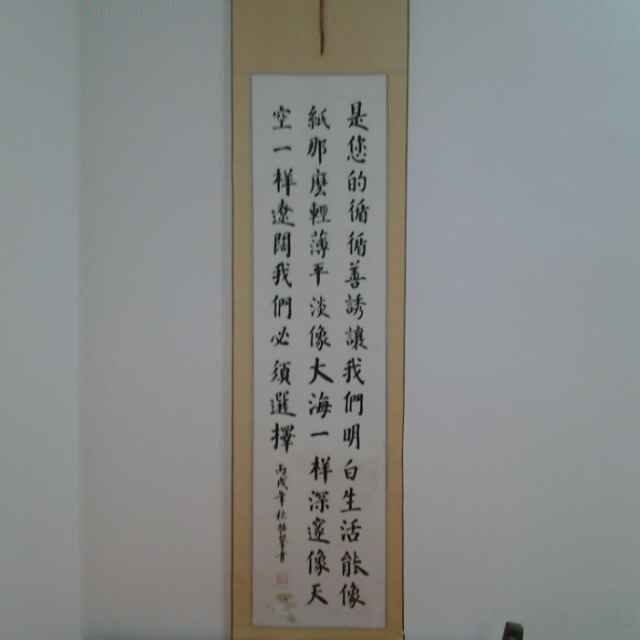 是您的循循善誘讓我們明白生活能像
紙那麼輕薄平淡像大海一样深邃像天
空一样遼闊我們必須選擇
丙戌年秋